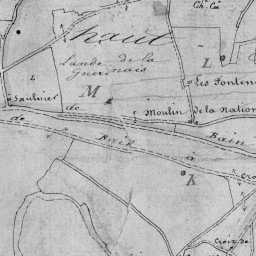 Ch. Cé
haut
Lande de la
Guerinais
L
4
Les Fonten
Saulnier
M
de
Moulin de la Nation
de
Bain
K
Cro
Croix de